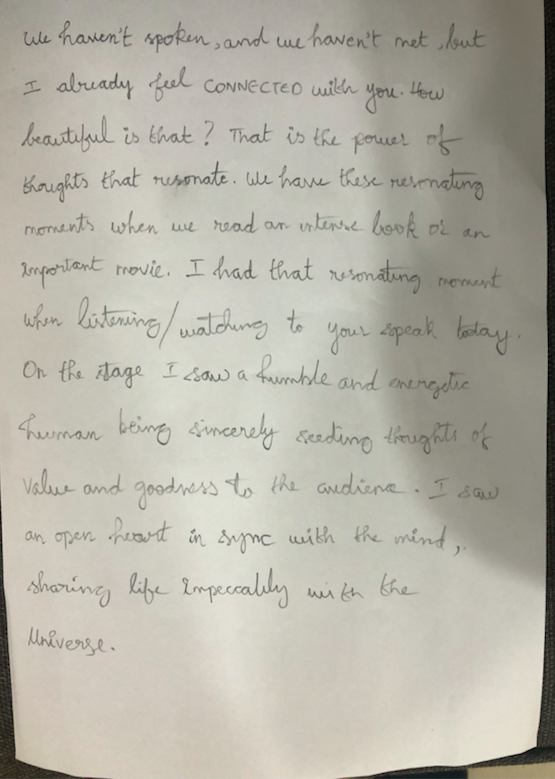 We haven't spoken, and we haven't met, but
I already feel CONNECTED with you. How
beautiful is that? That is the power of
thoughts that resonate. We have these resonating
moments when we read an intense book or an
important movie. I had that resonating moment
when listening/watching to your speak today.
On the stage I saw a humble and energetic
human being sincerely seeding thoughts of
value and goodness to the audience. I saw
an open heart in sync with the mind,
sharing life impeccably with the
Universe.